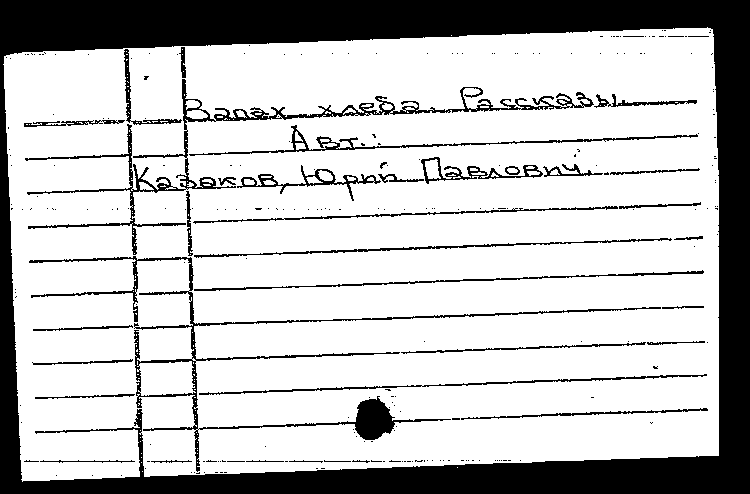 Запах хлеба. Рассказы.
Авт.:
Казаков, Юрий Павлович.